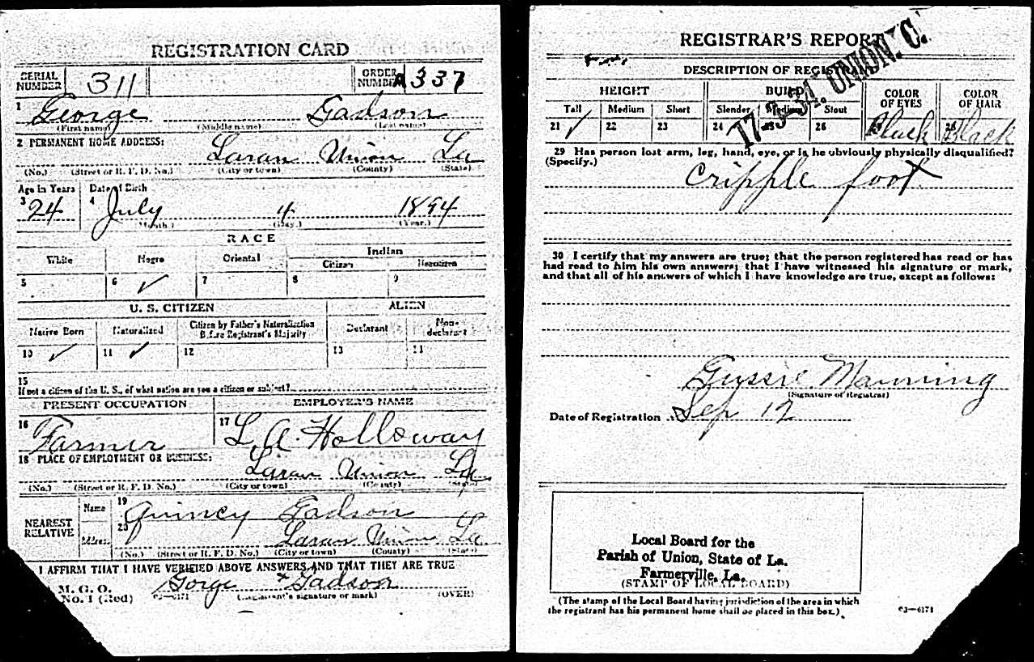 REGISTRATION CARD
SERIAL NUMBER 311 ORDER NUMBER A337
1 George Gadson
(First name) (Middle name) (Last name)
2 PERMANENT HOME ADDRESS: Laran Union La
(No.) (Street or R. F. D. No.) (City or town) (County) (State)
Age in Years Date of Birth
3 24 4 July 4 1894
(Month.) (Day.) (Year.)
RACE
White Negro Oriental Indian
Citizen Noncitizen
5 6 ✓ 7 8 9
U. S. CITIZEN ALIEN
Native Born Naturalized Citizen by Father's Naturalization Before Registrant's Majority Declarant Non-declarant
10 ✓ 11 ✓ 12 13 14
15
If not a citizen of the U. S., of what nation are you a citizen or subject?
PRESENT OCCUPATION EMPLOYER'S NAME
16 Farmer 17 L. A. Holloway
18 PLACE OF EMPLOYMENT OR BUSINESS: Laran Union La
(No.) (Street or R. F. D. No.) (City or town) (County) (State)
NEAREST RELATIVE Name 19 Quincy Gadson
Address 20 Laran Union La
(No.) (Street or R. F. D. No.) (City or town) (County) (State)
I AFFIRM THAT I HAVE VERIFIED ABOVE ANSWERS AND THAT THEY ARE TRUE
P. M. G. O.
Form No. 1 (Red) c3—6171 Gorge x Gadson
(Registrant's signature or mark) (OVER)
REGISTRAR'S REPORT
17-3-34. UNION. C.
DESCRIPTION OF REGISTRANT
HEIGHT BUILD COLOR OF EYES COLOR OF HAIR
Tall Medium Short Slender Medium Stout
21 ✓ 22 23 24 25 26 27 Black 28 Black
29 Has person lost arm, leg, hand, eye, or is he obviously physically disqualified?
(Specify.)
Cripple foot
30 I certify that my answers are true; that the person registered has read or has
had read to him his own answers; that I have witnessed his signature or mark,
and that all of his answers of which I have knowledge are true, except as follows:
Gussie Manning
(Signature of Registrar)
Date of Registration Sep 12
Local Board for the
Parish of Union, State of La.
Farmerville, La.
(STAMP OF LOCAL BOARD)
(The stamp of the Local Board having jurisdiction of the area in which
the registrant has his permanent home shall be placed in this box.)
c3—6171